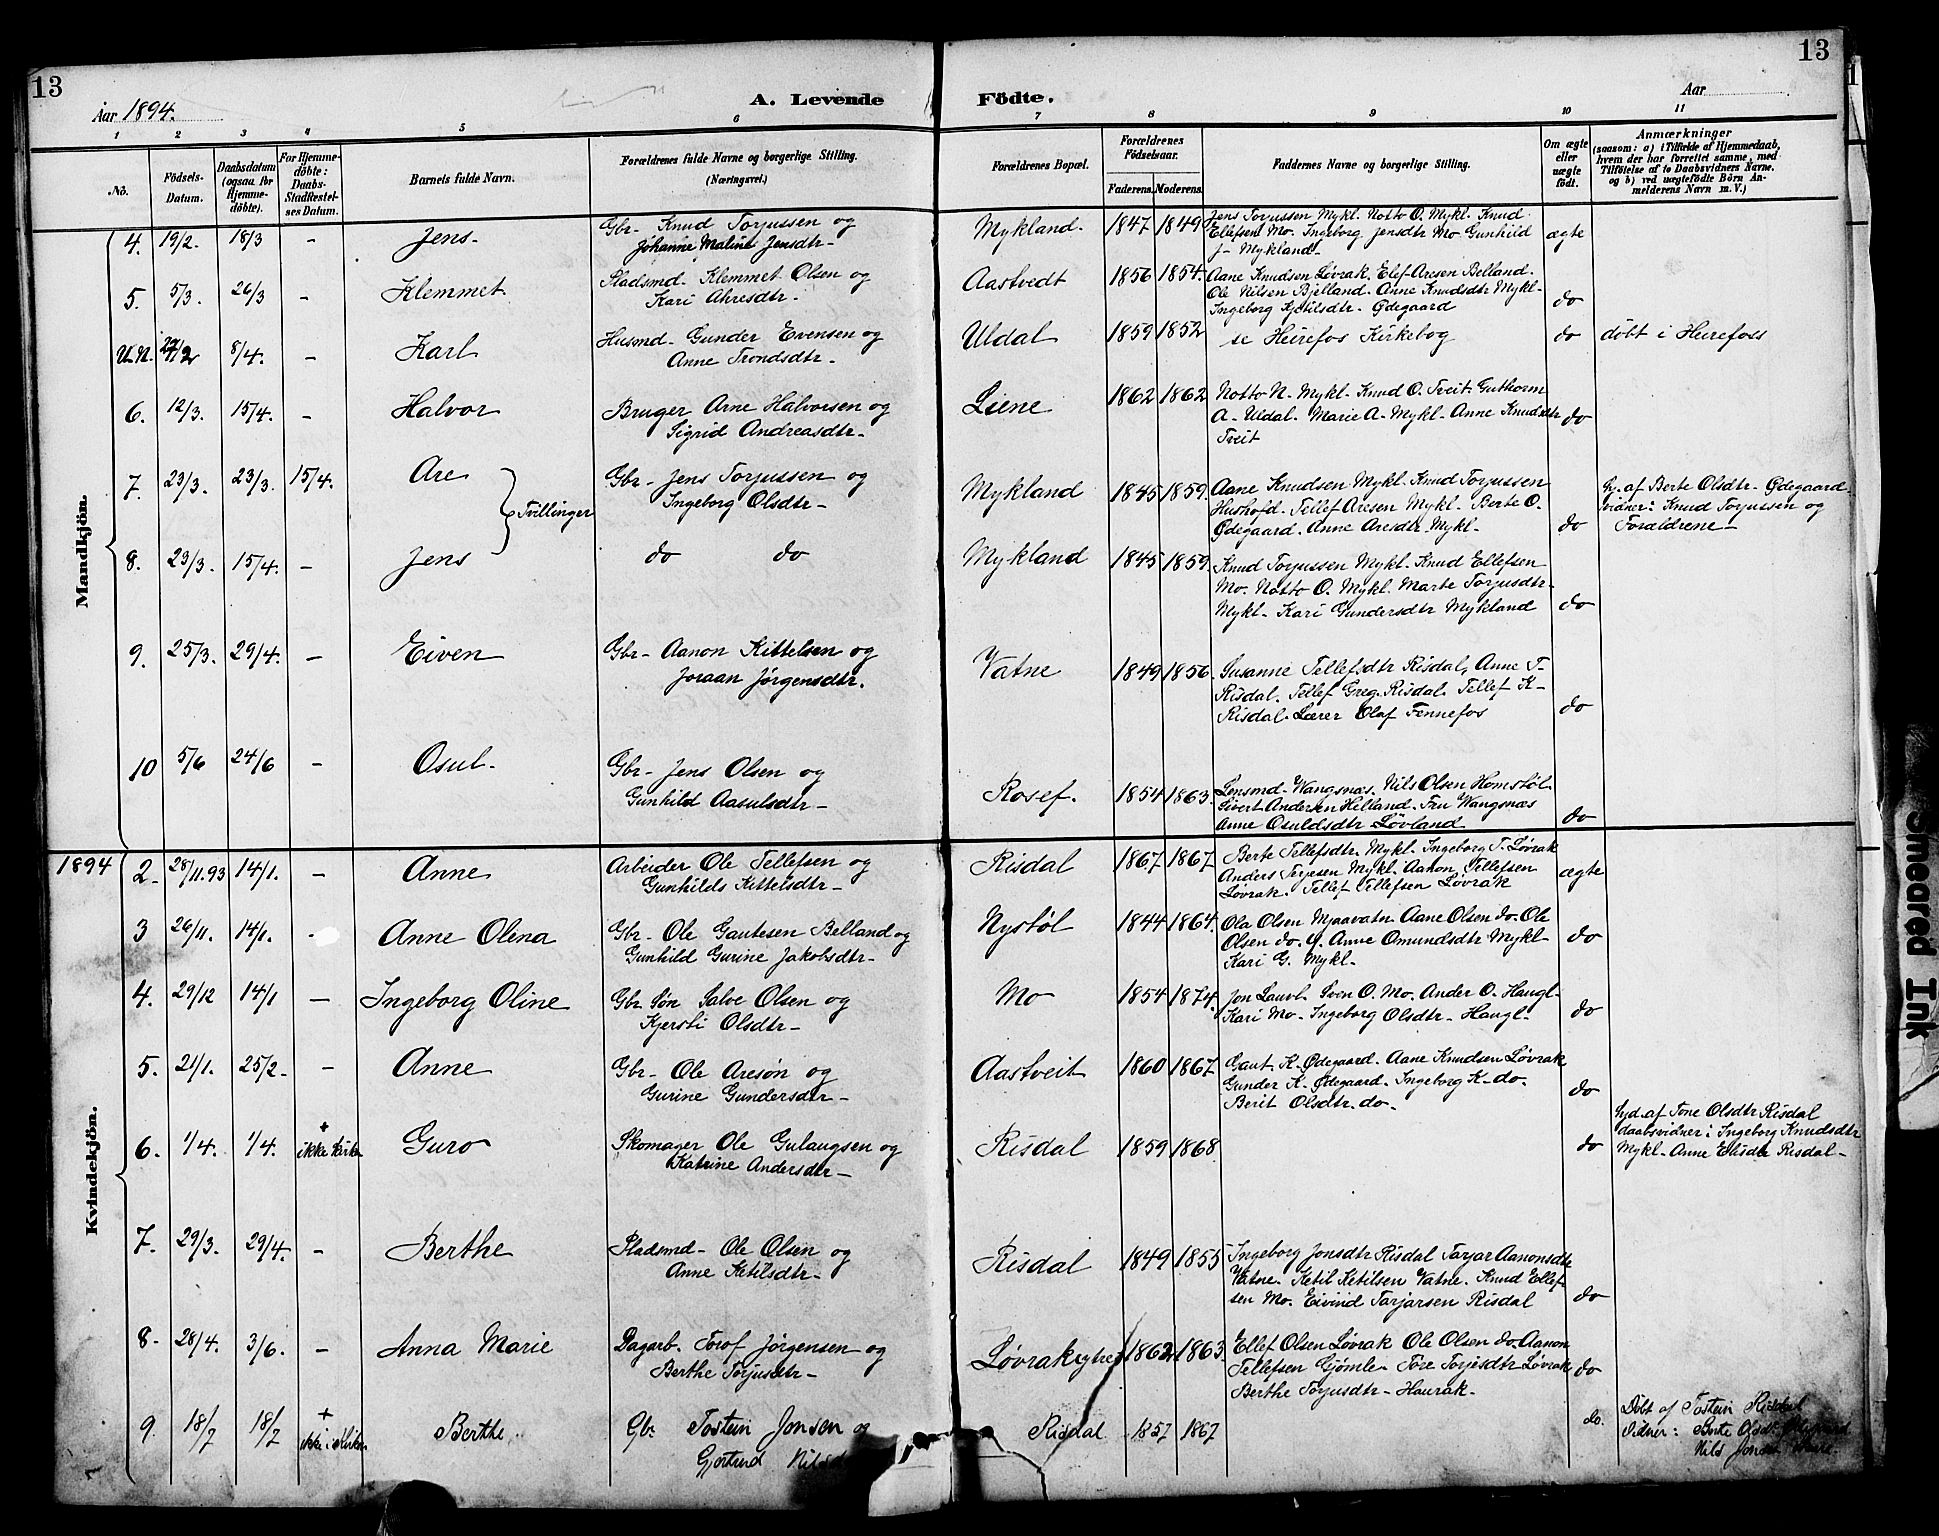 13
13
Aar 1894.
A. Levende Födte.
Aar
1 2 3 4 5 6 7 8 9 10 11
No.
Födsels-Datum.
Daabsdatum (ogsaa for Hjemme-döbte).
For Hjemme-döbte: Daabs-Stadfæstel-ses Datum.
Barnets fulde Navn.
Forældrenes fulde Navne og borgerlige Stilling. (Næringsvei.)
Forældrenes Bopæl.
Forældrenes Födselsaar.
Faderens. Moderens.
Faddernes Navne og borgerlige Stilling.
Om ægte eller uægte födt.
Anmærkninger
(saasom: a) i Tilfælde af Hjemmedaab, hvem der har forrettet samme, med Tilföielse af to Daabsvidners Navne, og b) ved uægtefödte Börn An-melderens Navn m. V.)
Mandkjön.
4. 19/2. 18/3 - Jens. Gbr. Knud Torjussen og Mykland. 1847 1849 Jens Torjussen Mykl. Notto O. Mykl. Knud
Johanne Maline Jensdtr- Ellefsen Mo. Ingeborg Jensdtr Mo Gunhild ægte
J- Mykland.
5. 5/3. 26/3 - Klemmet Pladsmd. Klemmet Olsen og Aastvedt 1856 1854. Aane Knudsen Løvrak. Elef Aresen Belland.
Kari Ahresdtr. Ole Nilsen Bjelland. Anne Knudsdtr Mykl- do
Ingeborg Kjetilsdtr. Ødegaard
U.N. 27/2 8/4. - Karl Husmd. Gunder Evensen og Uldal 1859 1852 se Heirefos Kirkebog do døbt i Heirefoss
Anne Trondsdtr-
6. 12/3. 15/4. - Halvor Bruger Arne Halvorsen og Liene 1862 1862 Notto N. Mykl. Knud O. Treit. Guthorm
Sigrid Andreasdtr- A. Uldal. Marie A. Mykl- Anne Knudsdtr do
Treit
7. 23/3. 23/3. 15/4. Are Gbr- Jens Torjussen og Mykland 1845 1859. Aane Knudsen Mykl. Knud Torjussen Hj. af Berte Olsdtr- Ødegaard.
Tvillinger Ingeborg Olsdtr- Tellef Aresen Mykl- Berte O. vidner: Knud Torjussen og
Ødegaard. Anne Aresdtr Mykl- do Forældrene-
8. 23/3. 15/4. - Jens do do Mykland 1845 1859. Knud Torjussen Mykl. Knud Ellefsen
Mo. Notto O. Mykl. Marte Torjusdtr-
Mykl- Kari Gundersdtr Mykland do
9. 25/3. 29/4. - Eiven Gbr- Aanon Kittelsen og Vatne 1849 1856. Susanne Tellefsdtr Risdal, Anne T.
Joraan Jørgensdtr. Risdal. Tellef Greg. Risdal. Tellef K-
Risdal. Lærer Olaf Fennefos do
10 5/6 24/6 - Osul. Gbr- Jens Olsen og Rosef. 1854 1863. Lensmd. Wangsnæs. Nils Olsen Homstøl
Gunhild Aasulsdtr- Sivert Andersen Helland. Fru Wangsnæs
Anne Osuldsdtr Løvland do
Kvindekjön.
1894 2- 28/11.93 14/1. - Anne Arbeider Ole Tellefsen og Risdal 1867 1867 Berte Tellefsdtr. Mykl. Ingeborg T. Løvrak
Gunhilds Kittelsdtr- Anders Terjesen Mykl. Aanon Tellefsen ægte
Løvrak. Tellef Tellefsen Løvrak
3 26/11. 14/1. - Anne Olena Gbr- Ole Gautesen Belland og Nystøl 1844 1864. Ola Olsen Mjaavatn. Aane Olsen do. Ole
Gunhild Gurine Jakobsdtr- Olsen do. Anne Omundsdtr Mykl do
Kari G. Mykl-
4. 29/12 14/1 - Ingeborg Oline Gbr. Søn Salve Olsen og Mo 1854 1874. Jon Lauvl. Sven O. Mo. Ander O. Haugl-
Kjersti Olsdtr- Kari Mo- Ingeborg Olsdtr- Haugl- do
5. 21/1. 25/2- - Anne Gbr- Ole Aresøn og Aastveit 1860 1867. Gaut K. Ødegaard. Aane Knudsen Løvrak
Gurine Gundersdtr- Gunder K- Ødegaard. Ingeborg K- do.
Berit Olsdtr. do. do
6. 1/4. 1/4. + ikke Kirke Guro Skomager Ole Gulaugsen og Risdal 1859 1868 do Hjd. af Tone Olsdtr Risdal
Katrine Andersdtr- daabsvidner: Ingeborg Knudsdtr
Mykl- Anne Elisdtr Risdal-
7. 29/3. 29/4. - Berthe Pladsmd- Ole Olsen og Risdal 1849 1855 Ingeborg Jonsdtr Risdal Tarjar Aanonsdtr
Anne Ketilsdtr- Vatne. Ketil Ketilsen Vatne. Knud Ellef-
sen Mo. Eivind Tarjarsen Risdal do
8- 28/4. 3/6. - Anna Marie Dagarb. Torof Jørgensen og 1862 1863. Ellef Olsen Løvrak Ole Olsen do. Aanon
Berthe Torjusdtr- Tellefsen Gjømle- Tore Torjesdtr Løvrak do
Berthe Torjusdtr- Haurak-
9. 18/7 18/7 + ikke i Kirken Berthe. Gbr. Tostein Jonsen og Risdal 1857 1867 do. Döbt af Tostein Risdal
Gjertrud Nils Vidner: Berte Olsdtr
Nils
Smeared Ink